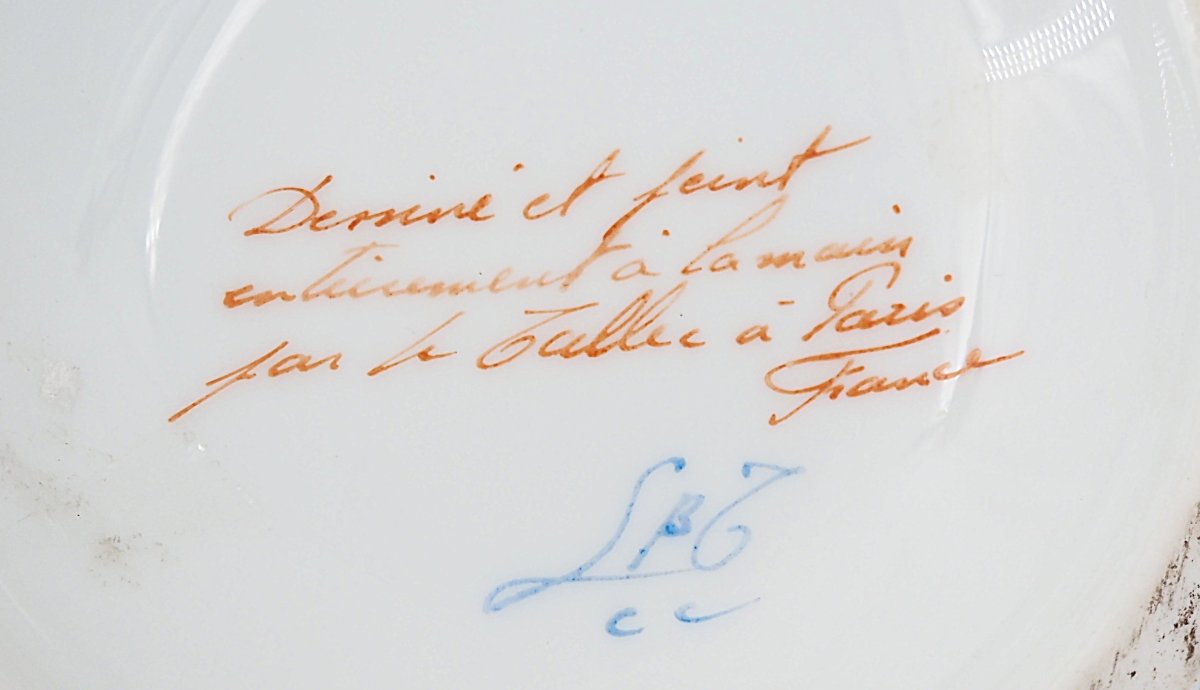 Dessiné et peint
entièrement à la main
par Le Tallec à Paris
France
LBT
cc